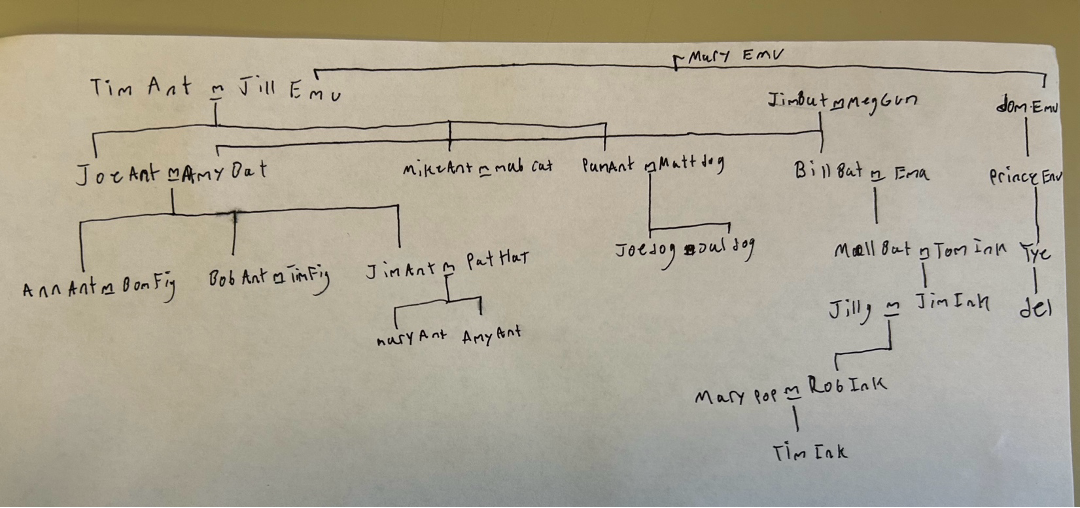 Mary Emu
Tim Ant m Jill Emu
Jim But m Meg Gun
dom Emu
Joe Ant m Amy Bat
Mike Ant m mab cat
Pam Ant m Matt dog
Bill Bat m Ema
Prince Emu
Ann Ant m Bom Fig
Bob Ant m Tim Fig
Jim Ant m Pat Hat
Joe dog
dog
Moll Bat m Tom Ink
Tye
Jilly m Jim Ink
del
mary Ant
Amy Ant
Mary pop m Rob Ink
Tim Ink